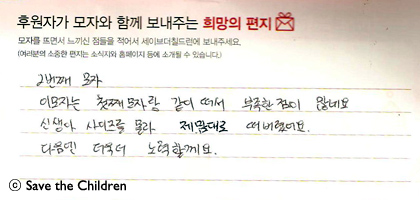 후원자가 모자와 함께 보내주는 희망의 편지
모자를 뜨면서 느끼신 점들을 적어서 세이브더칠드런에 보내주세요.
(여러분의 소중한 편지는 소식지와 홈페이지 등에 소개될 수 있습니다.)
2번째 모자
이모자는 첫째모자랑 같이 떠서 부족한 점이 많네요
신생아 사이즈를 몰라 제맘대로 떠버렸어요.
다음엔 더욱더 노력할께요.
ⓒ Save the Children